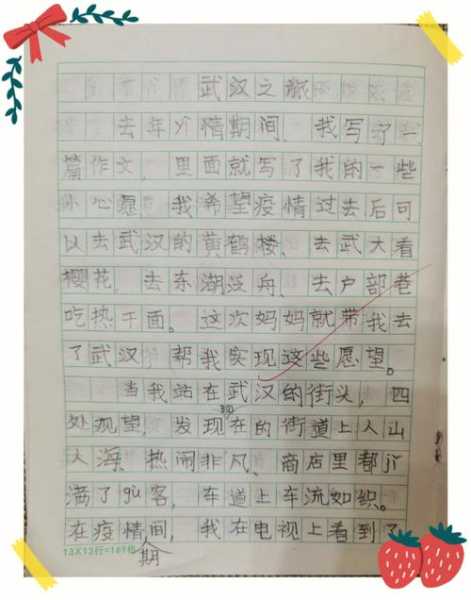 武汉之旅
去年yì情期间，我写了一
篇作文，里面就写了我的一些
小心愿，我希望疫情过去后可
以去武汉的黄鹤楼、去武大看
樱花、去东湖泛舟、去户部巷
吃热干面。这次妈妈就带我去
了武汉，帮我实现这些愿望。
当我站在武汉的街头，四
处观望，发现现在的街道上人山
人海、热闹非凡。商店里都jǐ
满了gù客，车道上车流如织。
在疫情期间，我在电视上看到了
13X13行=169格